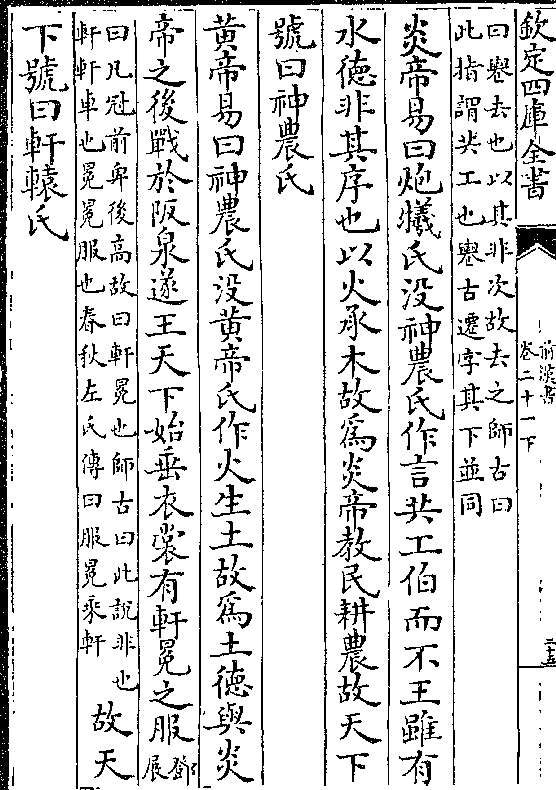 欽定四庫全書
前漢書
卷二十一下
二十五
曰罨去也以其非次故去之師古曰
此指謂共工也罨古遷字其下並同
炎帝易曰炮犧氏没神農氏作言共工伯而不王雖有
水德非其序也以火承木故爲炎帝教民耕農故天下
號曰神農氏
黄帝易曰神農氏没黄帝氏作火生土故爲土德與炎
帝之後戰於阪泉遂王天下始垂衣裳有軒冕之服
鄧
展
曰凡冠前卑後高故曰軒冕也師古曰此説非也
軒軒車也冕冕服也春秋左氏傳曰服冕乘軒
故天
下號曰軒轅氏